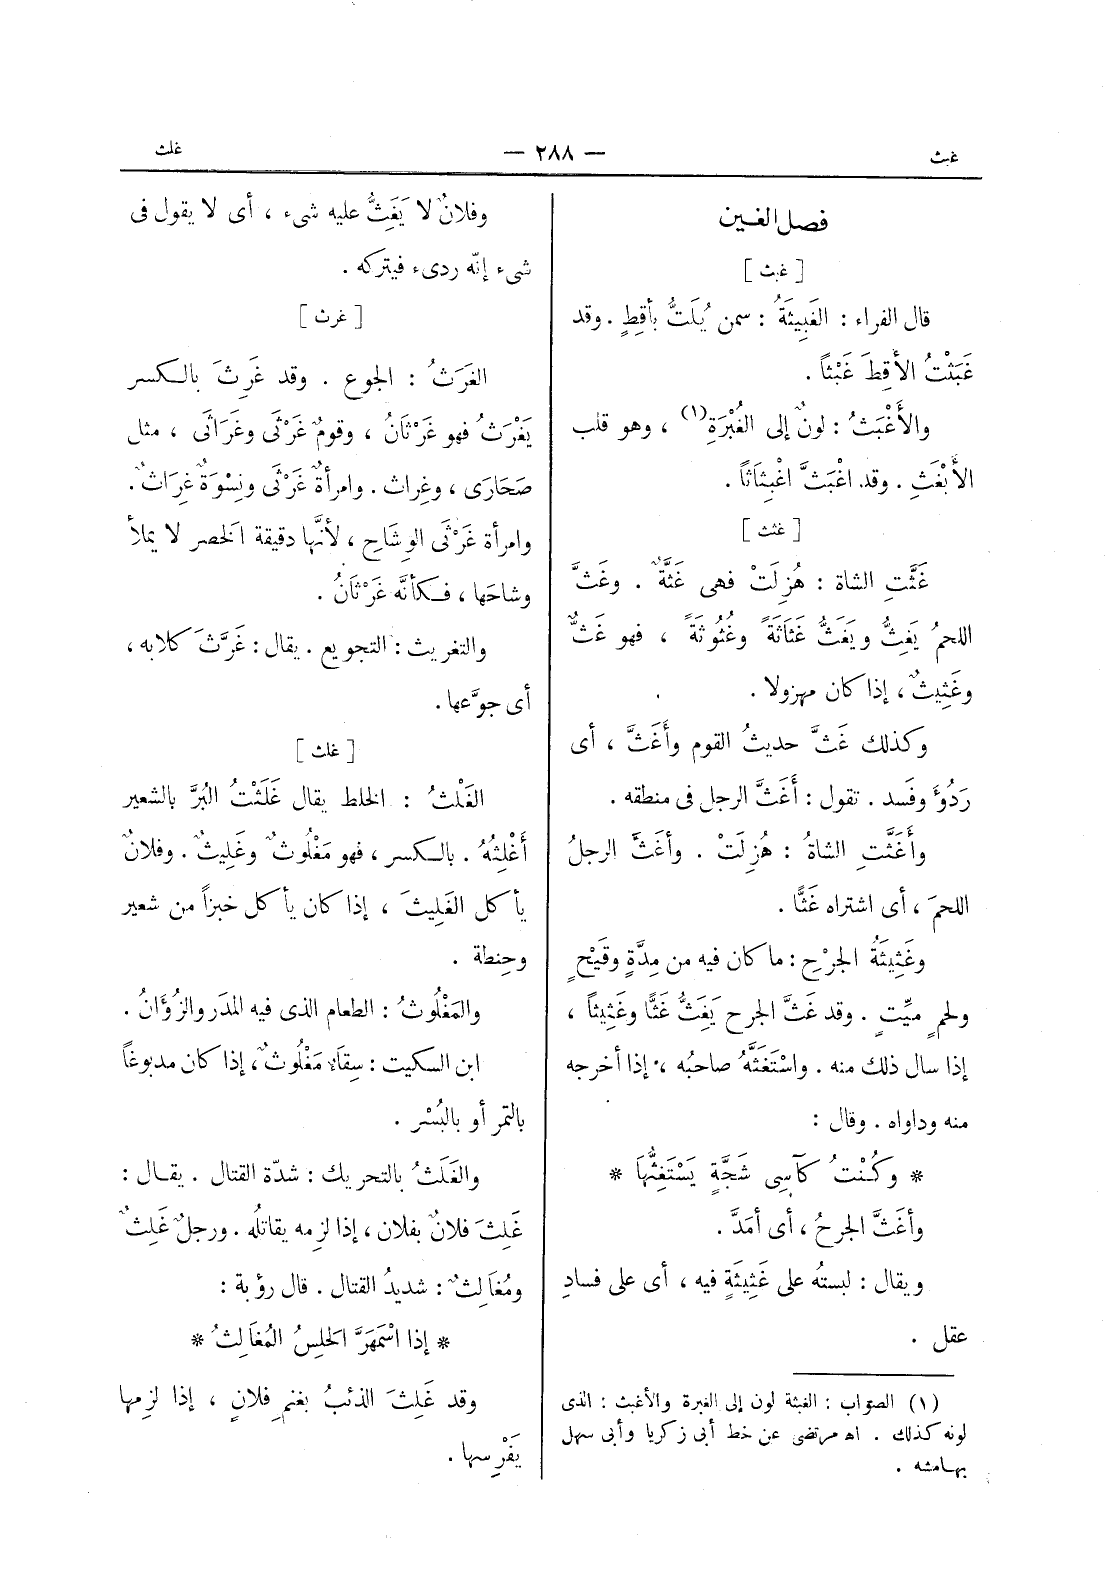 غبث — ٢٨٨ — غلث
فصل الغين
[ غبث ]
قال الفراء : الغَبِيثَةُ : سمن يُلَتُّ بأَقِطٍ . وقد
غَبَثْتُ الأقِطَ غَبْثاً .
والأَغْبَثُ : لونٌ إلى الغُبْرَةِ(١) ، وهو قلب
الأَبْغَثِ . وقد اغْبَثَّ اغْبِثَاثاً .
[ غثث ]
غَثَّتِ الشاة : هُزِلَتْ فهى غَثَّةٌ . وغَثَّ
اللحمُ يَغِثُّ ويَغَثُّ غَثَاثَةً وغُثُوثَةً ، فهو غَثٌّ
وغَثِيثٌ ، إذا كان مهزولا .
وكذلك غَثَّ حديثُ القوم وأَغَثَّ ، أى
رَدُؤَ وفَسد . تقول : أَغَثَّ الرجل فى منطقه .
وأَغَثَّتِ الشاةُ : هُزِلَتْ . وأغَثَّ الرجلُ
اللحمَ ، أى اشتراه غَثًّا .
وغَثِيثَةُ الجرْحِ : ما كان فيه من مِدَّةٍ وقَيْحٍ
ولحمٍ ميِّتٍ . وقد غَثَّ الجرح يَغَثُّ غَثًّا وغَثِيثاً ،
إذا سال ذلك منه . واسْتَغَثَّهُ صاحبُه ، إذا أخرجه
منه وداواه . وقال :
* وكُنْتُ كآسِى شَجَّةٍ يَسْتَغِثُّهَا *
وأغَثَّ الجرحُ ، أى أمَدَّ .
ويقال : لبستُه على غَثِيثَةٍ فيه ، أى على فسادِ
عقل .
(١) الصواب : الغبثة لون إلى الغبرة والأغبث : الذى
لونه كذلك . اه مرتضى عن خط أبى زكريا وأبى سهل
بهامشه .
وفلانٌ لا يَغَثُّ عليه شىء ، أى لا يقول فى
شىء إنّه ردىء فيتركه .
[ غرث ]
الغَرَثُ : الجوع . وقد غَرِثَ بالكسر
يَغْرَثُ فهو غَرْثَانُ ، وقومٌ غَرْثَى وغَرَاثَى ، مثل
صَحَارَى ، وغِراث . وامرأةٌ غَرْثَى ونِسْوَةٌ غِرَاثٌ .
وامرأة غَرْثَى الوِشَاحِ ، لأنَّها دقيقة الخصر لا يملأ
وشاحَها ، فكأنَّه غَرْثَانُ .
والتغريث : التجويع . يقال : غَرَّثَ كلابه ،
أى جوَّعها .
[ غلث ]
الغَلْثُ : الخلط يقال غَلَثْتُ البُرَّ بالشعير
أَغْلِثُهُ . بالكسر ، فهو مَغْلُوثٌ وغَلِيثٌ . وفلانٌ
يأكل الغَلِيثَ ، إذا كان يأكل خبزاً من شعير
وحِنطة .
والمَغْلُوثُ : الطعام الذى فيه المدَر والزُؤَانُ .
ابن السكيت : سِقاء مَغْلُوثٌ ، إذا كان مدبوغاً
بالتمر أو بالبُسْر .
والغَلَثُ بالتحريك : شدّة القتال . يقال :
غَلِثَ فلانٌ بفلان ، إذا لزمه يقاتله . ورجلٌ غَلِثٌ
ومُغَالِثٌ : شديدُ القتال . قال رؤبة :
* إذا اسْمَهَرَّ الحَلِسُ المُغَالِثُ *
وقد غَلِثَ الذئبُ بغنمِ فلانٍ ، إذا لزمها
يَفْرِسها .